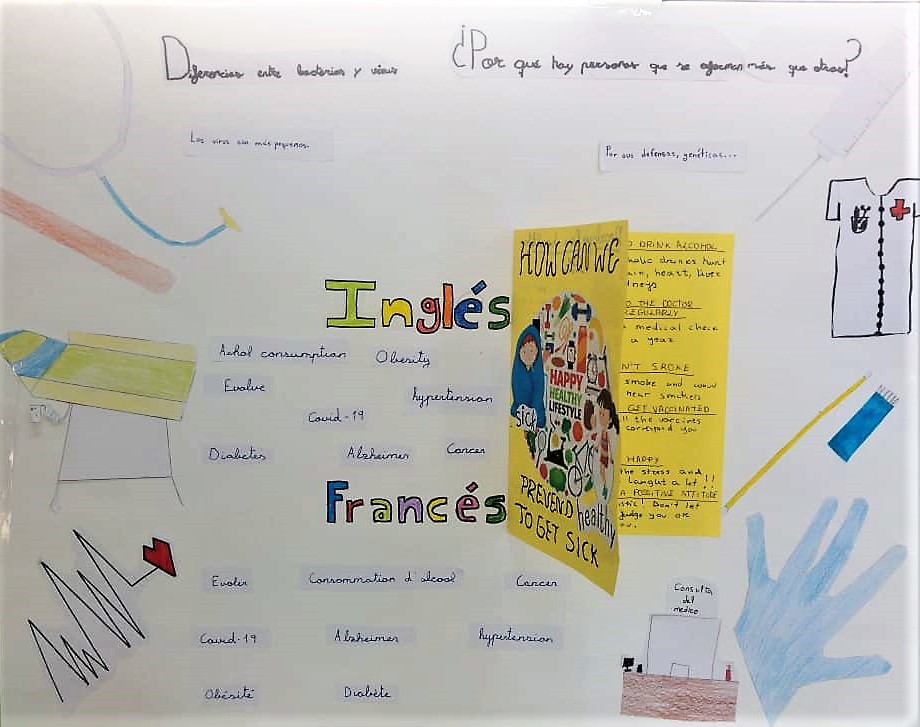 Diferencias entre bacterias y virus
¿Por qué hay personas que se enferman más que otras?
Los virus son más pequeños.
Por sus defensas, genéticas...
Inglés
Achol consumption
Obesity
Evolve
hypertension
Covid-19
Diabetes
Alzheimer
Cancer
HOW CAN WE
HAPPY
HEALTHY
LIFESTYLE
sick
healthy
PREVEND
TO GET SICK
O DRINK ALCOHOL
holic drinks hurt
ain, heart, liver
dneys
O THE DOCTOR
REGULARLY
medical check
a year
N'T SMOKE
smoke and
near smokers
GET VACCINATED
ll the vaccines
correspond you
HAPPY
the stress and,
langht a lot!!
A POSSITIVE ATTITUDE
istic! Don't let
judge you or
Francés
Evoler
Consommation d'alcool
Cancer
Covid-19
Alzheimer
hypertension
Obésité
Diabète
Consulta
del
medico